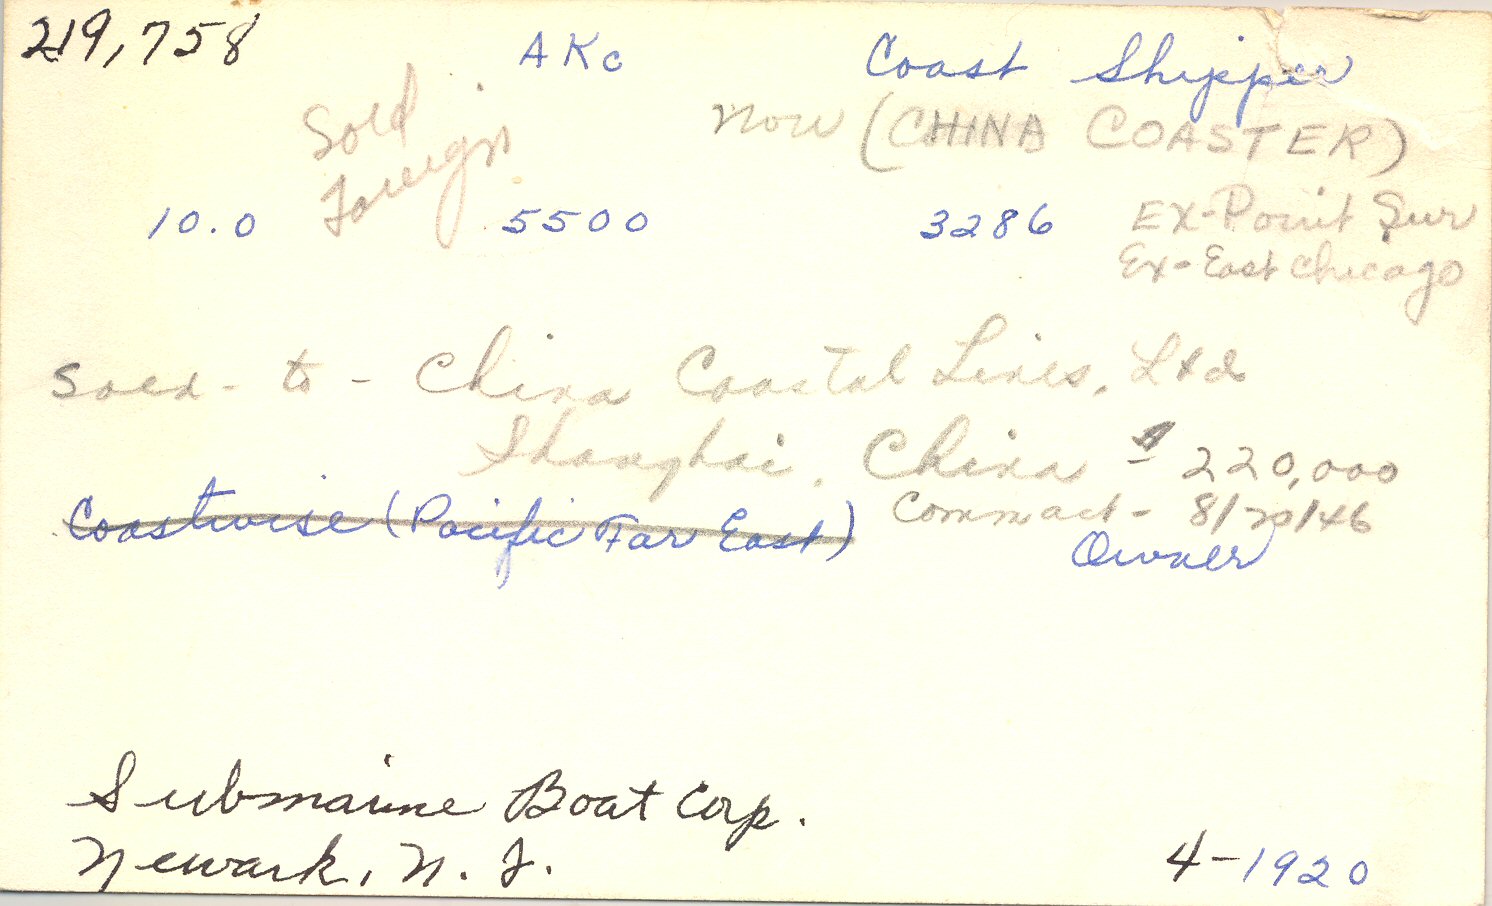 219,758 AKc Coast Shipper
Sold Foreign
Now (CHINA COASTER)
10.0 5500 3286 Ex-Point Sur
Ex-East Chicago
Sold - to - China Coastal Lines, Ltd
Shanghai, China $220,000
Coastwise (Pacific Far East) Comm act - 8/20/46
Owner
Submarine Boat Corp.
Newark, N. J. 4-1920